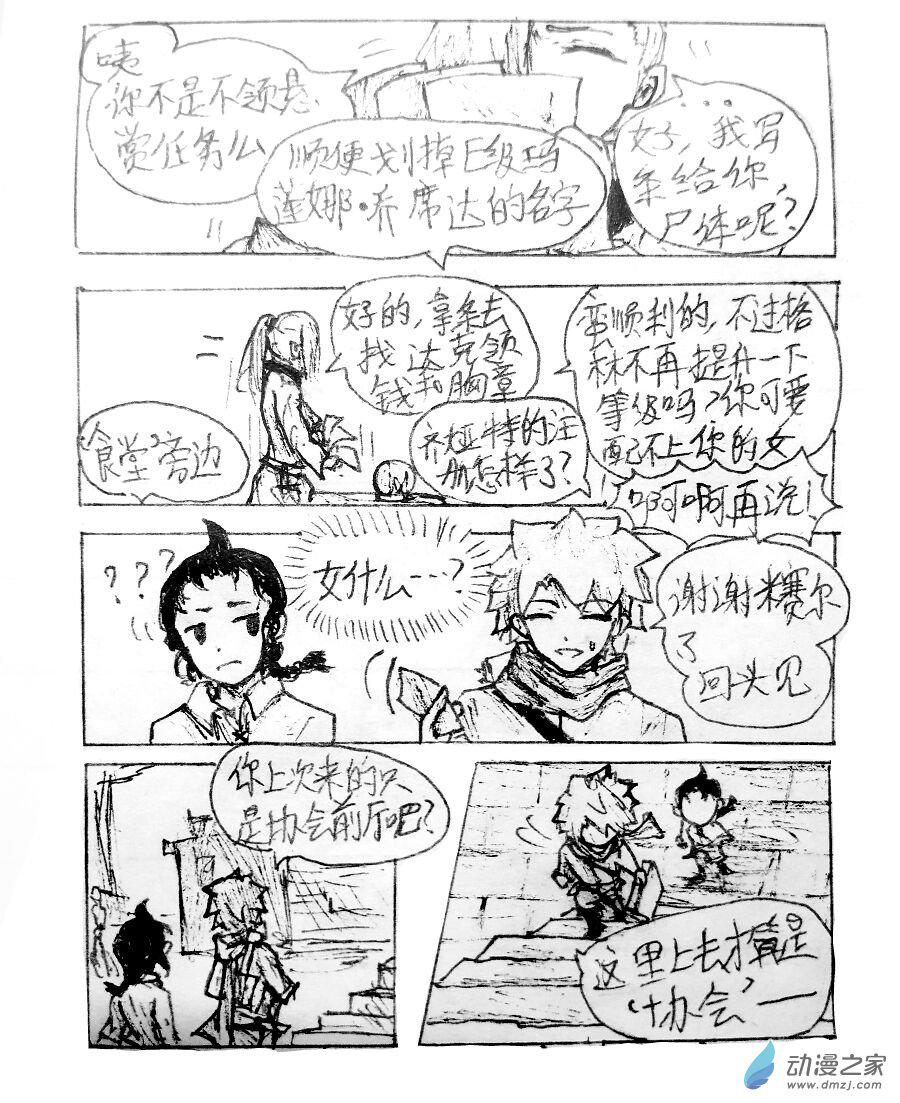 咦
你不是不领悬
赏任务么
顺便划掉E级玛
莲娜·乔席达的名字
...
好,我写
条给你,
尸体呢?
好的,拿条去
找达克领
钱和胸章
食堂旁边
蛮顺利的,不过格
林不再提升一下
等级吗?你可要
配不上你的女
齐娅特的注
册怎样了?
啊啊啊再说!
???
女什么……?
谢谢米赛尔
了
回头见
你上次来的只
是协会前厅吧?
这里上去才算是
‘协会’—
动漫之家
www.dmzj.com